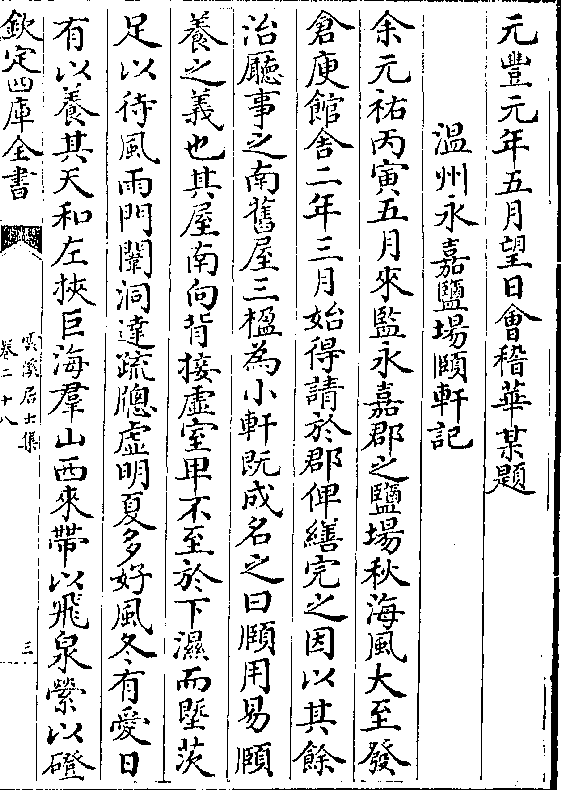 元豐元年五月望日會稽華某題
溫州永嘉鹽場頤軒記
余元祐丙寅五月來監永嘉郡之鹽場秋海風大至發
倉庾館舍二年三月始得請於郡俾繕完之因以其餘
治廳事之南舊屋三楹為小軒既成名之曰頤用易頤
養之義也其屋南向背接虛室卑不至於下濕而塈茨
足以待風雨門闥洞達疏牕虛明夏多好風冬有愛日
有以養其天和左挾巨海羣山西來帶以飛泉縈以磴
欽定四庫全書
雲溪居士集
卷二十八
三